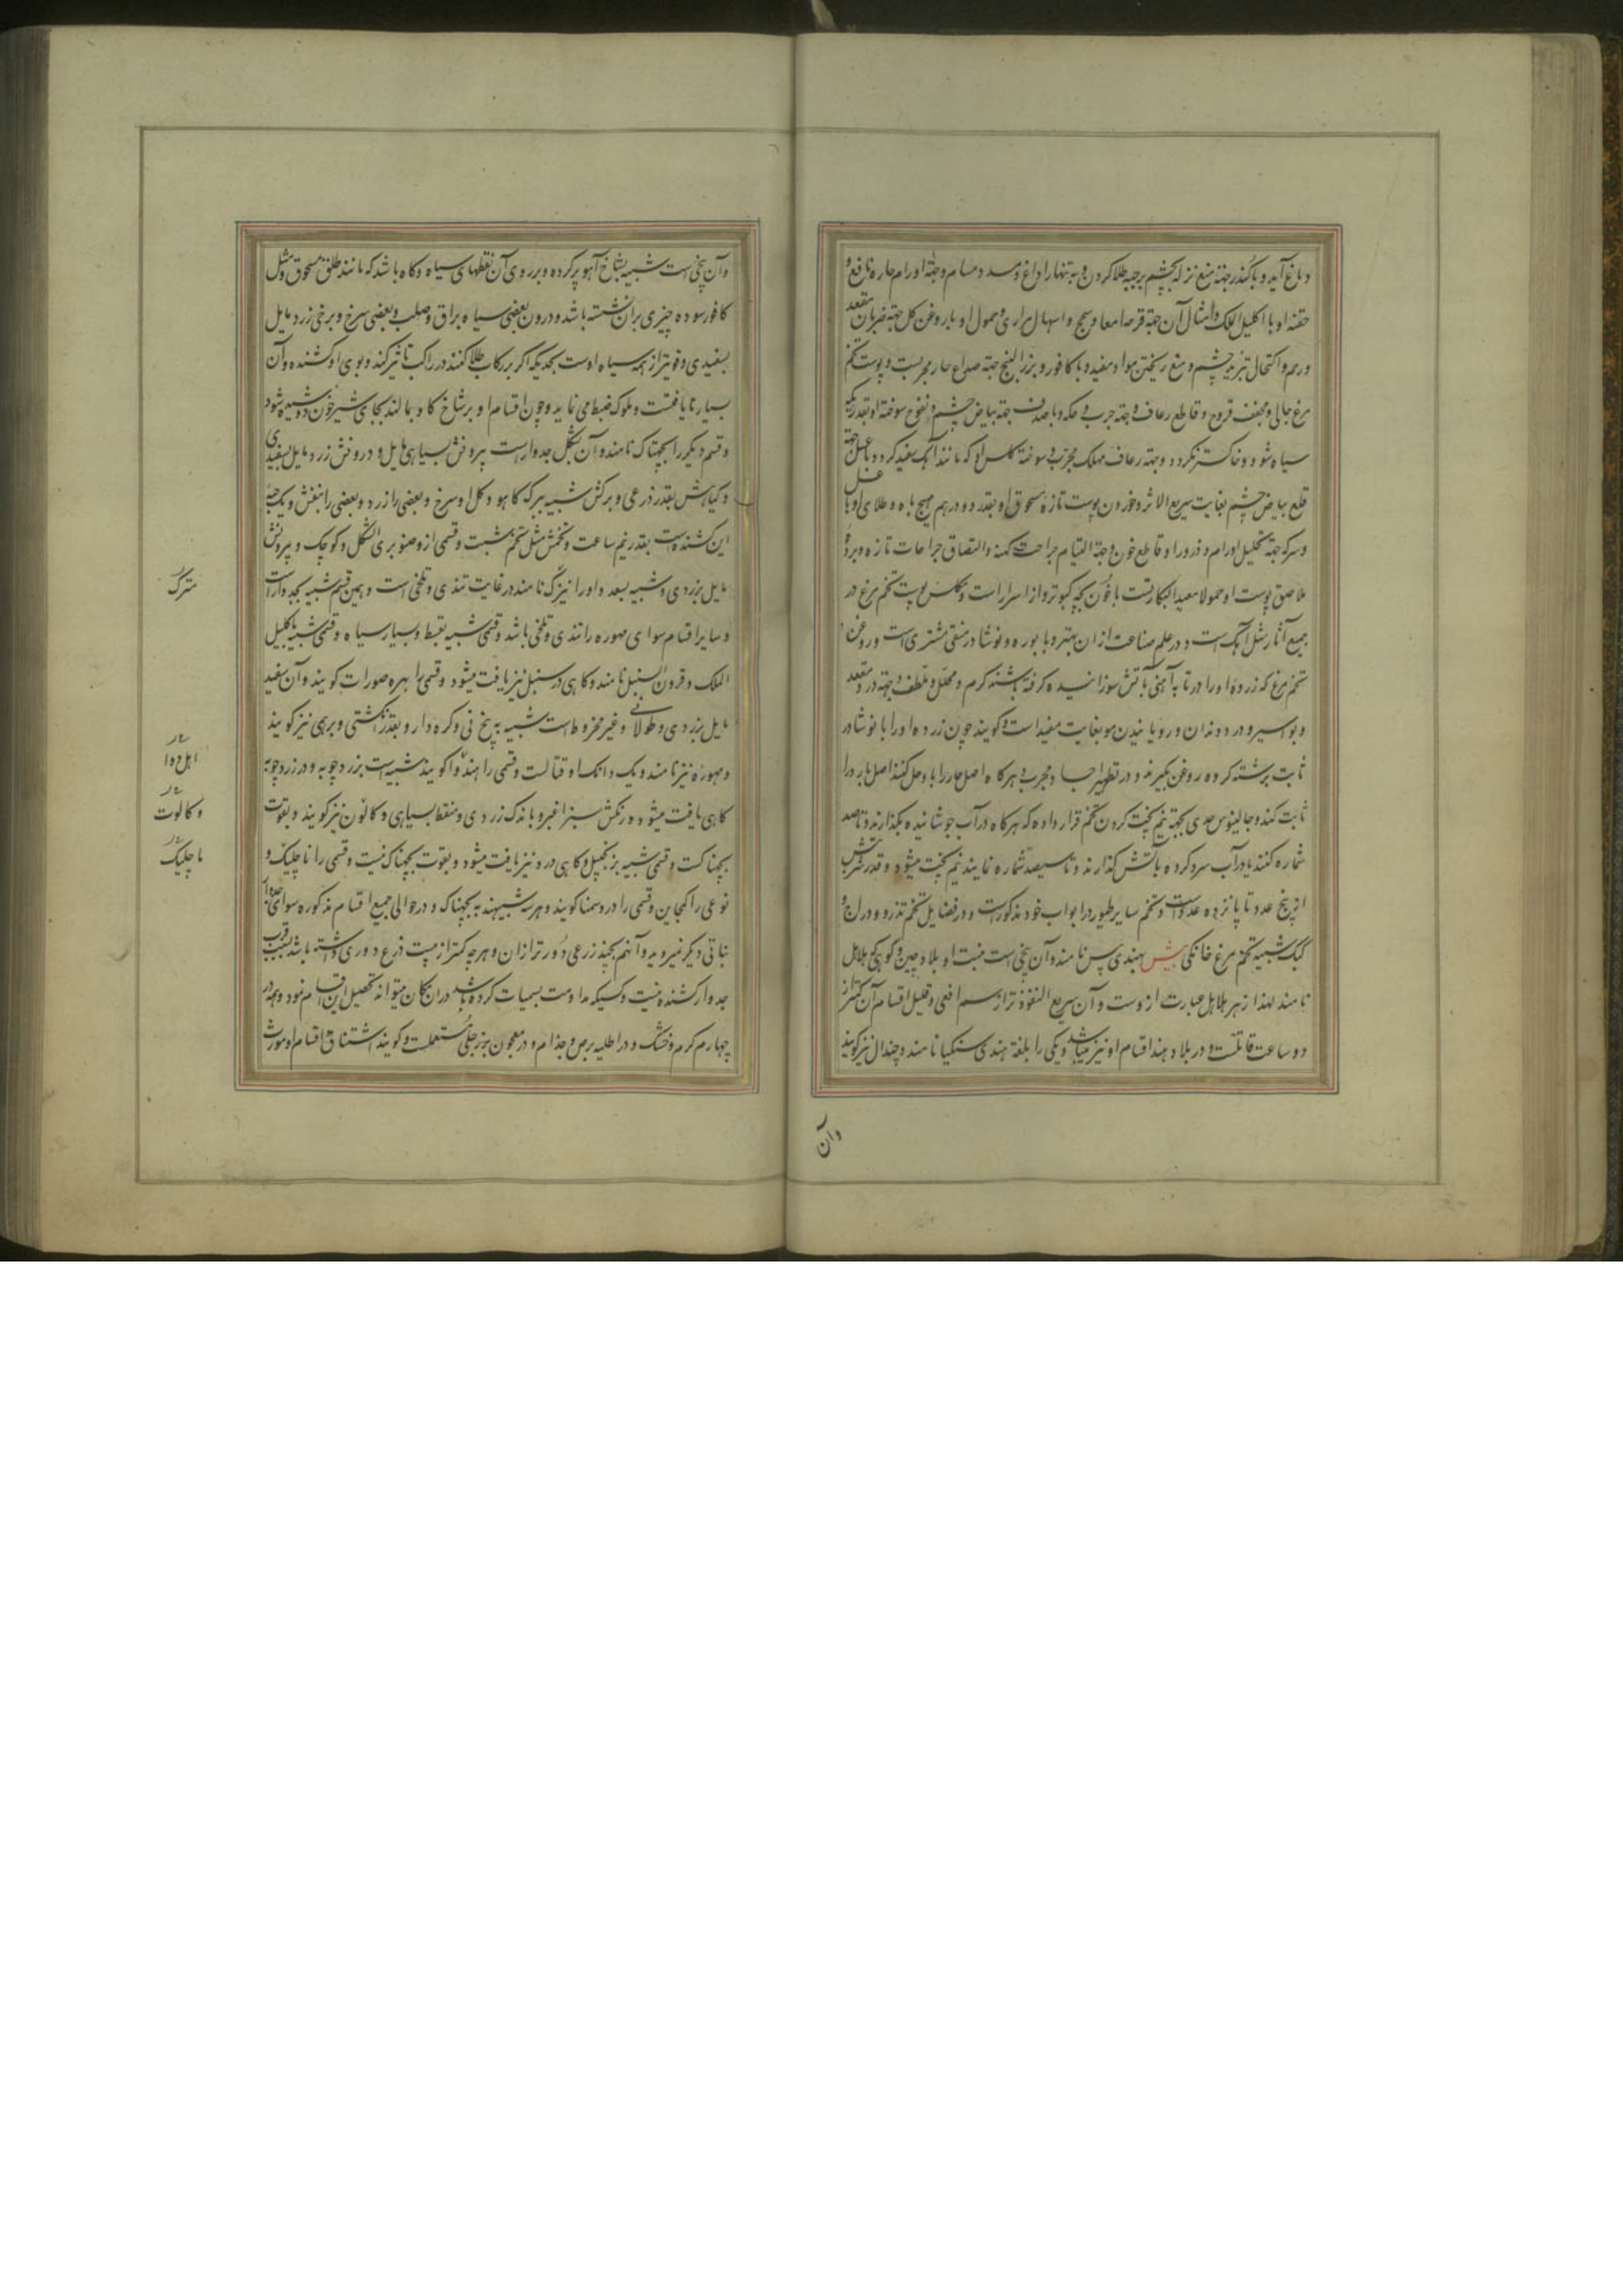 دماغ آید و با کندر جهة منع نزله بچشم بر جبهه طلا کردن و به تنها رادع و مسدد مسام و جهة اورام حاره نافع و
حقنه او با اکلیل الملک و امثال آن جهة قرحه امعا و سحج و اسهال مراری و حمول او با روغن کل جهة ضربان مقعد
و رحم و اکتحال تبرید چشم و منع ریختن مواد مفید و با کافور و بزر البنج جهة صداع حار مجربست و پوست تخم
مرغ جالی و مجفف قروح و قاطع رعاف و جهة جرب و حکه و با صدف جهة بیاض چشم و نفوخ سوخته او بقدریکه
سیاه شود و خاکستر نکردد و جهة رعاف مهلک مجرب و سوخته کلس او که مانند آهک سفید کردد با عسل جهة
قلع بیاض چشم بغایت سریع الاثر و خوردن پوست تازه مسحوق او بقدر دو درهم مهیج باه و طلای او با عسل
و سرکه جهة تحلیل اورام و ذرور او قاطع خون و جهة التیام جراحت کهنه و التصاق جراحات تازه و پرده
ملاصق پوست او حمولا معید البکارتست با خون بچه کبوتر و از اسرار است و کلس پوست تخم مرغ در
جمیع آثار مثل آهک است و در علم صناعت از ان بهتر و با بوره و نوشادر منقی مشتری است و روغن
تخم مرغ که زرده او را در تابه آهنی بآتش سوزانیده کرفته باشند کرم و محلل و ملطف و جهة درد مقعد
و بواسیر و درد دندان و رویانیدن مو بغایت مفید است و کویند چون زرده او را با نوشادر
ثابت برشته کرده روغن بکیرند و در تطهیر اجساد مجرب و هرکاه اصل حار را با و حل کنند اصل بارد را
ثابت کند و جالینوس حدی بجهة نیم پخت کردن تخم قرار داده که هرکاه در آب جوشانیده بکذارند و تا صد
شماره کنند یا در آب سرد کرده بآتش کذارند و تا سیصد شماره نمایند نیم پخت میشود و قدر شربتش
از پنج عدد تا پانزده عدد است و تخم سایر طیور در ابواب خود مذکور است و در فضایل تخم تذرو و دراج و
کبک شبیه بتخم مرغ خانکی بیش بهندی بس نامند و آن بیخی است منبت او بلاد چین و کوهی که هلاهل
نامند لهذا زهر هلاهل عبارت از وست و آن سریع النفوذتر از سم افعی و قلیل اقسام آن کمتر از
دو ساعت قاتلست و در بلاد هند اقسام او نیز میباشد و یکی را بلغة هندی سنکیا نامند و چندال نیز کویند
وآن
وآن بیخی است شبیه بشاخ آهو بر کرده و بر روی آن نقطهای سیاه و کاه باشد که مانند طلق مسحوق و مثل
کافور سوده چیزی بران نشسته باشد و درون بعضی سیاه براق و صلب و بعضی سرخ و برخی زرد مایل
بسفیدی و قویتر از همه سیاه اوست بحدیکه اکر بر رکاب طلا کنند در راکب تاثیر کند و بوی او کشنده و آن
بسیار نایافتست و ملوک ضبط می نمایند و چون اقسام او بر شاخ کاو بمالند بجای شیر خون دوشیده شود
و قسم دیکر را بچهناک نامند و آن بشکل جدوار است بیرونش بسیاهی مایل و درونش زرد مایل بسفیدی
و کیاهش بقدر ذرعی و برکش شبیه ببرک کاهو و کل او سرخ و بعضی را زرد و بعضی را بنفش و یک حبه
این کشنده است بقدر نیم ساعت و تخمش مثل تخم شبت و قسمی از و صنوبری الشکل و کوچک و بیرونش
مایل بزردی و شبیه بسعد و او را نیز ک نامند در غایت تندی و تلخی است و همین قسم شبیه بجدوار است
و سایر اقسام سوای مهوره را تندی و تلخی باشد و قسمی شبیه بقسط و بسیار سیاه و قسمی شبیه باکلیل
الملک و قرون السنبل نامند و کاهی در سنبل نیز یافت میشود و قسمی را بهره صورات کویند و آن سفید
مایل بزردی و طولانی و غیر مخروط است شبیه به بیخ نی و کره دار و بقدر انکشتی و برهمی نیز کویند
و مهوره نیز نامند و یک دانک او قتالست و قسمی را هندوا کویند شبیه است بزردچوبه و در زردچوبه
کاهی یافت میشود و رنکش سبز اغبر و با اندک زردی و منقط بسیاهی و کالون نیز کویند و بقوت
بچهناکست و قسمی شبیه بزنجبیل و کاهی در و نیز یافت میشود و بقوت بچهناک نیست و قسمی را ناچلینک و
نوعی را کهجاین و قسمی را در دسمنا کویند و هر سه شبیهند به بچهناک و در حوالی جمیع اقسام مذکوره سوای جدوار
نباتی دیکر نمیروید و آنهم بچند زرعی دورتر از ان و هرچه کمتر از بیست ذرع دوری داشته باشد بسبب قرب
جدوار کشنده نیست و کسیکه مداومت بسمیات کرده باشد دران مکان میتواند تحصیل این اقسام نمود و همه در
چهارم کرم و خشک و در اطلیه برص و جذام و در معجون بزرجلی مستعملست و کویند استنشاق اقسام او مورث
مترک
اهل دوا
و کالوت
ماچلینک